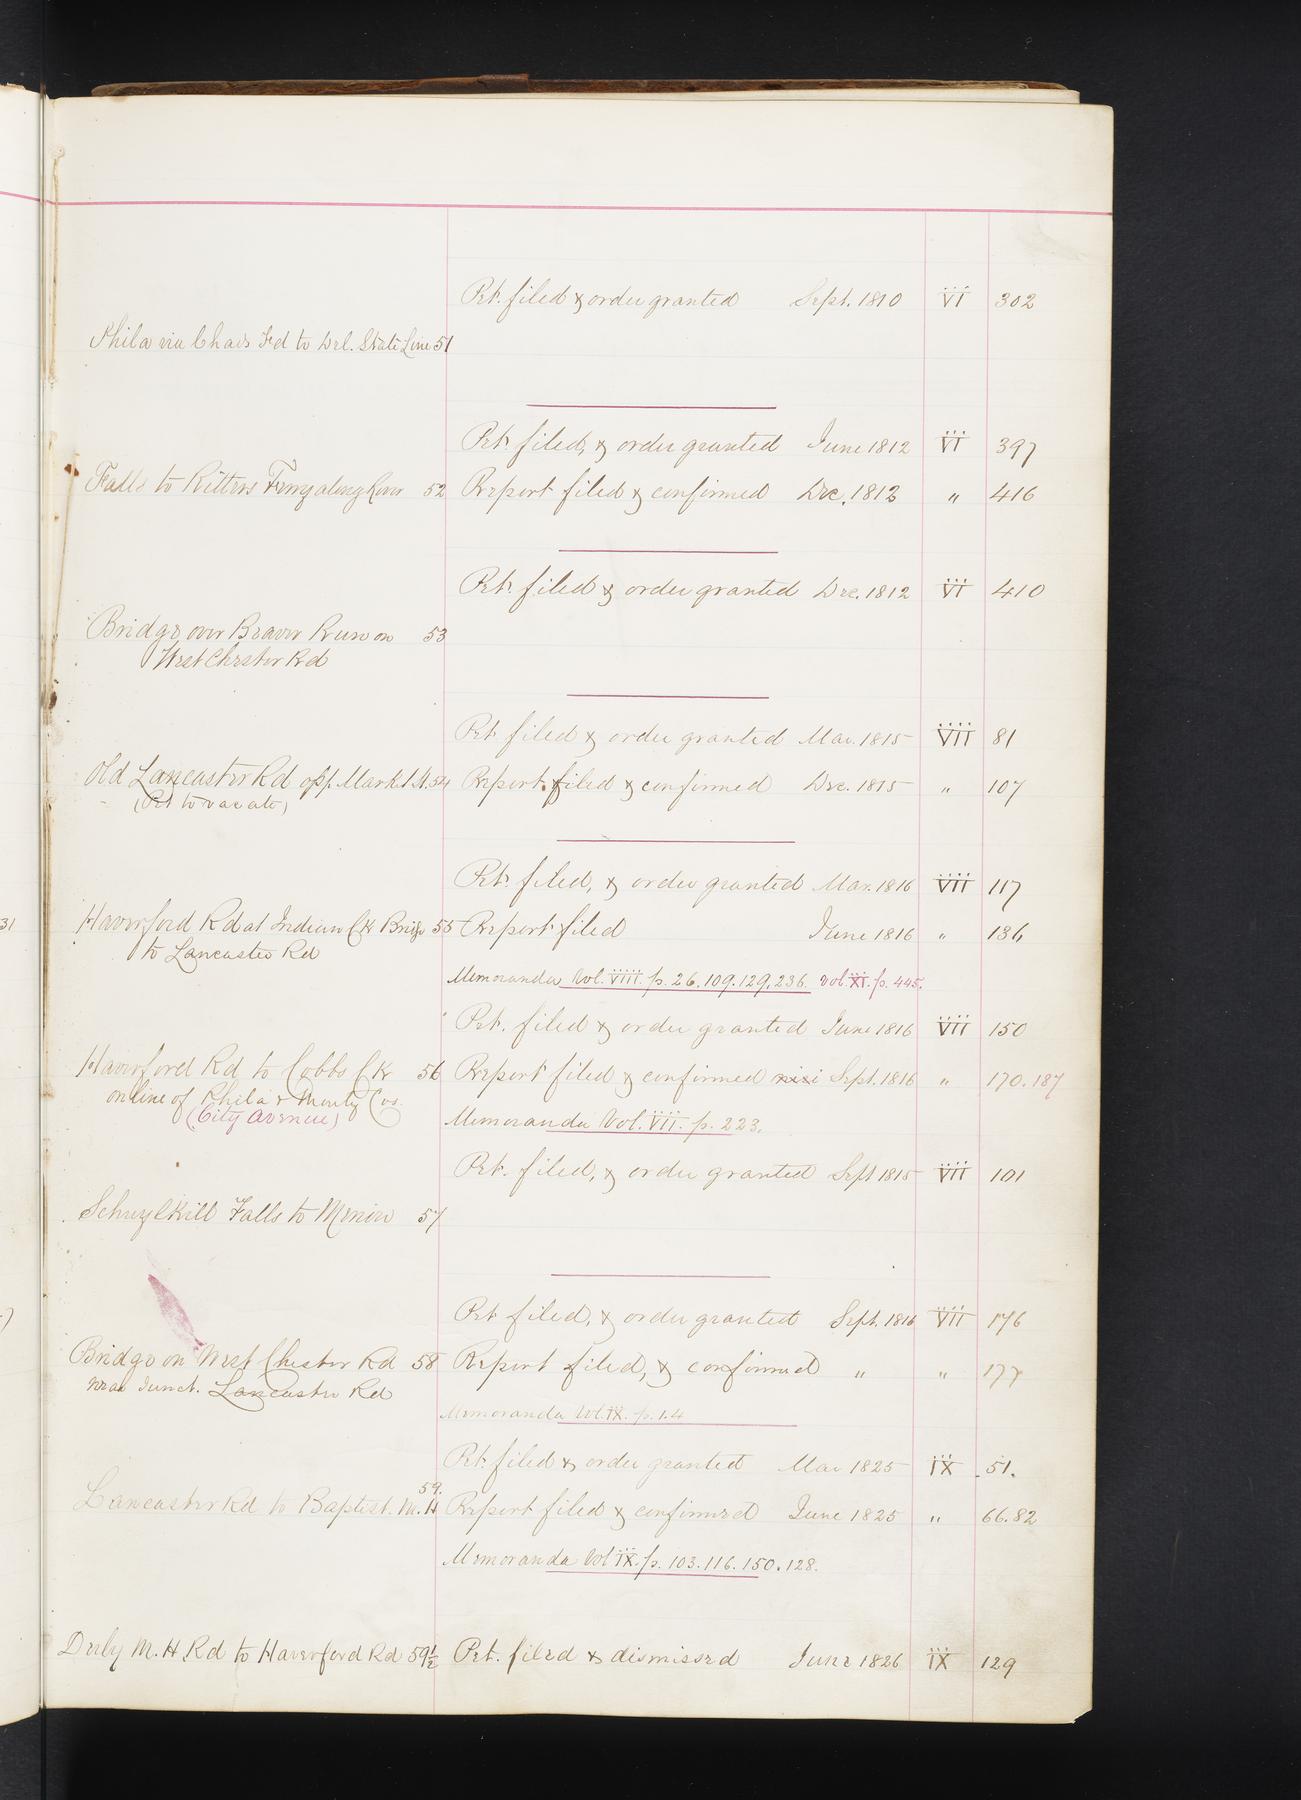 Pet. filed & order granted Sept. 1810 VI 302
Phila via Chads Fd to Del. State Line 51
Pet. filed, & order granted June 1812 VI 397
Falls to Ritters Ferry along River 52 Report filed & confirmed Dec. 1812 " 416
Pet. filed & order granted Dec. 1812 VI 410
Bridge over Beaver Run on 53
West Chester Rd
Pet. filed & order granted Mar. 1815 VII 81
Old Lancaster Rd opp. Market St. 54 Report filed & confirmed Dec. 1815 " 107
(Pet to vacate)
Pet. filed, & order granted Mar. 1816 VII 117
31
Haverford Rd at Indian Ck Bridge 55 Report filed June 1816 " 136
to Lancaster Rd
Memoranda Vol. VIII. p. 26. 109. 129. 236. Vol. XI. p. 445.
Pet. filed & order granted June 1816 VII 150
Haverford Rd to Cobbs Ck 56 Report filed & confirmed nisi Sept. 1816 " 170. 187
on line of Phila & Monty Cos.
(City Avenue)
Memoranda Vol. VII. p. 223.
Pet. filed, & order granted Sept 1815 VII 101
Schuylkill Falls to Merion 57
Pet filed, & order granted Sept. 1816 VII 176
Bridge on West Chester Rd 58 Report filed, & confirmed " " 177
near Junct. Lancaster Rd
Memoranda Vol. IX. p. 1.4
Pet. filed & order granted Mar 1825 IX 51.
59.
Lancaster Rd to Baptist. M. H Report filed & confirmed June 1825 " 66. 82
Memoranda Vol IX. p. 103. 116. 150. 128.
Darby M. H. Rd to Haverford Rd 59½ Pet. filed & dismissed June 1826 IX 129